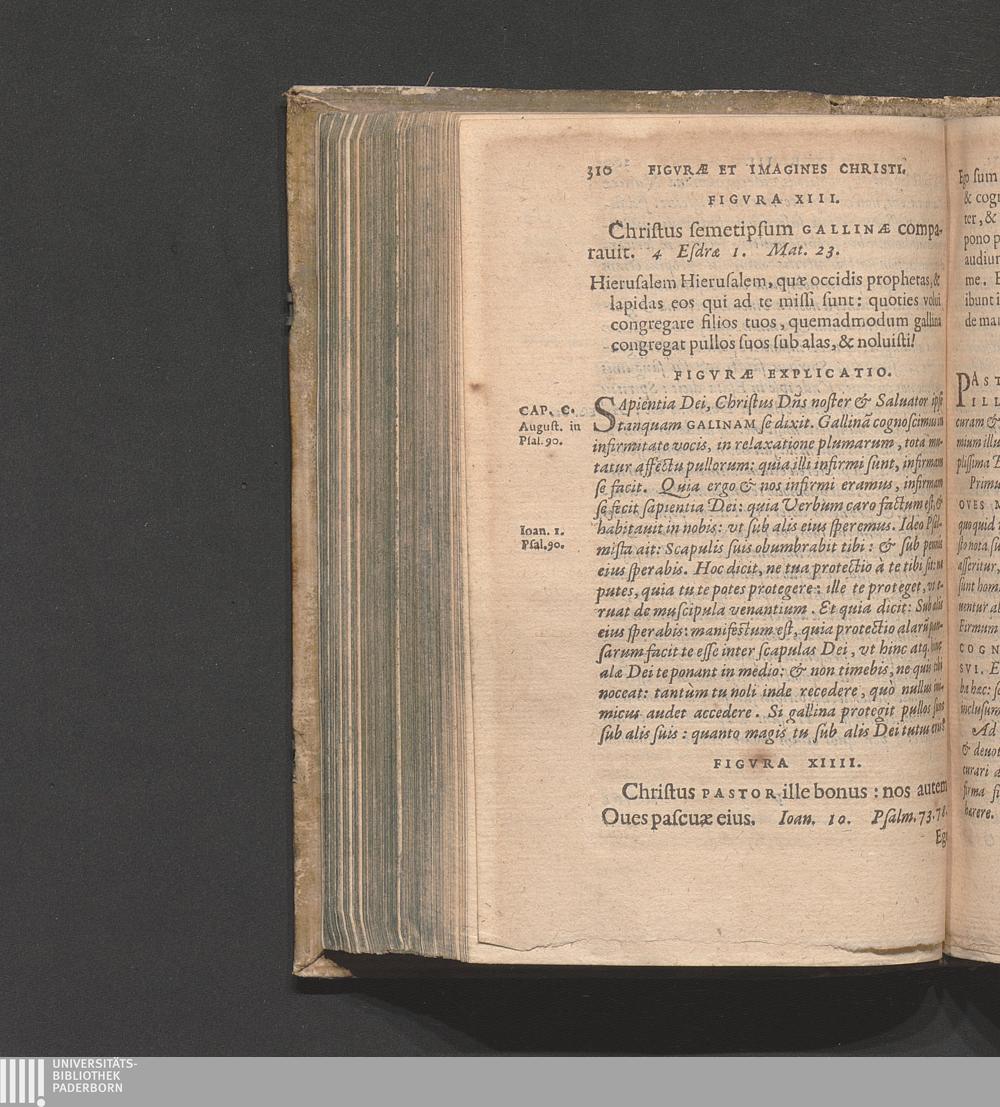 310 FIGVRÆ ET IMAGINES CHRISTI.
FIGVRA XIII.
Chriſtus ſemetipſum GALLINÆ compa-
rauit. 4 Eſdræ 1. Mat. 23.
Hieruſalem Hieruſalem, quæ occidis prophetas, &
lapidas eos qui ad te miſſi ſunt: quoties volui
congregare filios tuos, quemadmodum gallina
congregat pullos ſuos ſub alas, & noluiſti!
FIGVRÆ EXPLICATIO.
CAP. C.
Auguſt. in
Pſal. 90.
SApientia Dei, Chriſtus Dñs noſter & Saluator ipſe
tanquam GALINAM ſe dixit. Gallinā cognoſcimus in
infirmitate vocis, in relaxatione plumarum, tota mu-
tatur affectu pullorum: quia illi infirmi ſunt, infirmam
ſe facit. Quia ergo & nos infirmi eramus, infirmam
ſe fecit ſapientia Dei: quia Verbum caro factum eſt, &
habitauit in nobis: vt ſub alis eius ſperemus. Ideo Pſal-
miſta ait: Scapulis ſuis obumbrabit tibi: & ſub pennis
eius ſperabis. Hoc dicit, ne tua protectio à te tibi ſit: ne
putes, quia tu te potes protegere: ille te proteget, vt e-
ruat de muſcipula venantium. Et quia dicit: Sub alis
eius ſperabis: manifeſtum eſt, quia protectio alarū pan-
ſarum facit te eſſe inter ſcapulas Dei, vt hinc atq. hinc
alæ Dei te ponant in medio: & non timebis, ne quis tibi
noceat: tantùm tu noli inde recedere, quò nullus ini-
micus audet accedere. Si gallina protegit pullos ſuos
ſub alis ſuis: quanto magis tu ſub alis Dei tutus eris?
Ioan. 1.
Pſal. 90.
FIGVRA XIIII.
Chriſtus PASTOR ille bonus: nos autem
Oues paſcuæ eius. Ioan. 10. Pſalm. 73. 78.
Ego
Ego ſum
& cog
ter, &
pono p
audiun
me. E
ibunt i
de ma
PAST
ILL
curam &
mium illu
pliſſima
Primu
OVES
quoquid
ſto nota ſu
aſſeritur,
ſunt hom
uentur al
Firmum
COGN
SVI. E
ba hæc: ſe
incluſum
Ad
& deuot
curari a
firma ſi
hærere.
UNIVERSITÄTS-
BIBLIOTHEK
PADERBORN